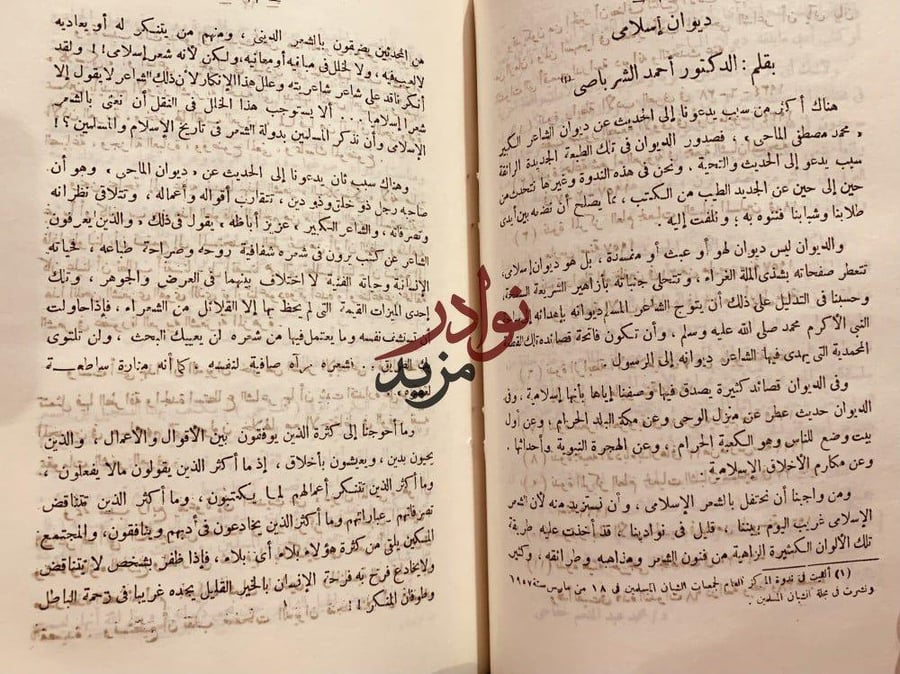 ديوان إسلامى
بقلم : الدكتور أحمد الشرباصى (١)
هناك أكثر من سبب يدعونا إلى الحديث عن ديوان الشاعر الكبير
« محمد مصطفى الماحى » ، فصدور الديوان فى تلك الطبعة الجديدة الرائقة
سبب يدعو إلى الحديث والتحية . ونحن فى هذه الندوة وغيرها نتحدث من
حين إلى حين عن الجديد الطيب من الكتب ، مما يصلح أن نقدمه بين أيدى
طلابنا وشبابنا فننوه به ، ونلفت إليه .
والديوان ليس ديوان لهو أو عبث أو مفسدة ، بل هو ديوان إسلامى،
تتعطر صفحاته بشذى الملة الغراء ، وتتحلى جنباته بأزاهير الشريعة السمحة،
وحسبنا فى التدليل على ذلك أن يتوج الشاعر المسلم ديوانه بإهدائه
النبى الأكرم محمد صلى الله عليه وسلم ، وأن تكون فاتحة قصائده تلك القصة
المحمدية التى يهدى فيها الشاعر ديوانه إلى الرسول .
وفى الديوان قصائد كثيرة يصدق فيها وصفنا إياها بأنها إسلامية . وفى
الديوان حديث عطر عن منزل الوحى وعن مكة البلد الحرام ، وعن أول
بيت وضع للناس وهو الكعبة الحرام ، وعن الهجرة النبوية وأحداثها .
وعن مكارم الأخلاق الإسلامية .
ومن واجبنا أن نحتفل بالشعر الإسلامى ، وأن نستزيد منه لأن الشعر
الإسلامى غريب اليوم بيننا ، قليل فى نوادينا ، قد أخذت عليه طريقة
تلك الألوان الكثيرة الزاهية من فنون الشعر ومذاهبه وطرائقه ، وكثير
(١) ألقيت فى ندوة المركز العام لجمعيات الشبان المسلمين فى ١٨ من مارس سنة ١٩٥٧
ونشرت فى مجلة الشبان المسلمين .
من المحدثين يضرقون بالشعر الدينى ، ومنهم من يتنكر له أو يعاديه
لا لعيب فيه ، ولا لخلل فى مبانيه أو معانيه، ولكن لأنه شعر إسلامى !! ولقد
أنكر ناقد على شاعر شاعريته وعلل هذا الإنكار لأن ذلك الشاعر لا يقول إلا
شعرا إسلاميا . . . ألا يستوجب هذا الخلل فى النقل أن نعنى بالشعر
الإسلامى وأن نذكر المسلمين بدولة الشعر فى تاريخ الإسلام والمسلمين ؟ !
وهناك سبب ثان يدعونا إلى الحديث عن « ديوان الماحى » وهو أن
صاحبه رجل ذو خلق وذو دين ، تتقارب أقواله وأعماله ، وتتلاقى نظراته
وتصرفاته ، والشاعر الكبير « عزيز أباظه » يقول فى ذلك . « والذين يعرفون
الشاعر عن كثب يرون فى شعره شفافية روحه وصراحة طباعه ، فحياته
الإنسانية وحياته الفنية لا اختلاف بينهما فى العرض والجوهر ، وتلك
إحدى الميزات القيمة التى لم يحظ بها إلا القلائل من الشعراء ، فإذا حاولت
أن تستشف نفسه وما يعتمل فيها من شعره لن يعييك البحث ، ولن تلتوى
بك الطريق .. فشعره مرآة صافية لنفسه ، كما أنه منارة ساطعة
وما أحوجنا إلى كثرة الذين يوفقون بين الأقوال والأعمال ، والذين
يحيون بدين ، ويعيشون بأخلاق ، إذ ما أكثر الذين يقولون مالا يفعلون ،
وما أكثر الذين تتنكر أعمالهم لما يكتبون ، وما أكثر الذين تتناقض
تصرفاتهم وعباراتهم وما أكثر الذين يخادعون فى أدبهم وينافقون، والمجتمع
المسكين يلقى من كثرة هؤلاء بلاء أى بلاء، فإذا ظفر بشخص لا يتناقض
ولا يخادع فرح به فرحة الإنسان بالخير القليل يجده غريبا فى زحمة الباطل
وطوفان المنكر ! !
نوادر
مزيد